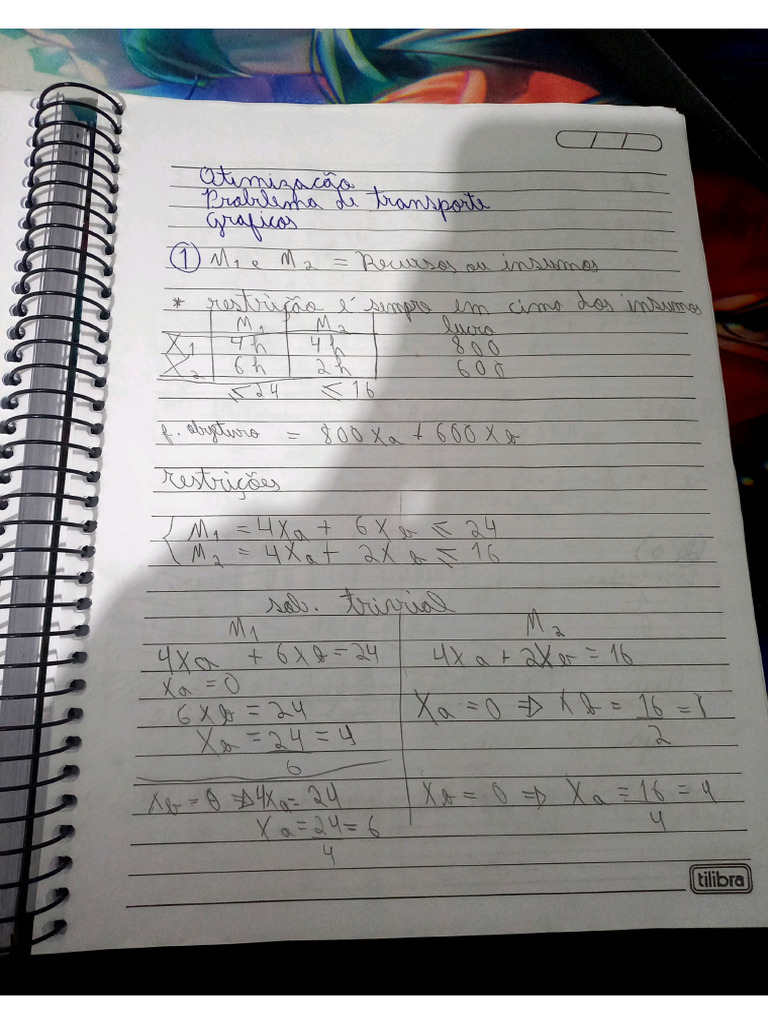 / /
Otimização
Problema de transporte
Graficos
① M1 e M2 = Recursos ou insumos
* restrição é sempre em cima dos insumos
M1 M2 lucro
X1 4h 4h 800
X2 6h 2h 600
≤ 24 ≤ 16
f. objetivo = 800Xa + 600Xb
restrições
{ M1 = 4Xa + 6Xb ≤ 24
M2 = 4Xa + 2Xb ≤ 16
sol. trivial
M1 M2
4Xa + 6Xb = 24 4Xa + 2Xb = 16
Xa = 0
6Xb = 24 Xa = 0 ⇒ Xb = 16/2 = 8
Xb = 24/6 = 4
Xb = 0 ⇒ 4Xa = 24 Xb = 0 ⇒ Xa = 16/4 = 4
Xa = 24/4 = 6
tilibra